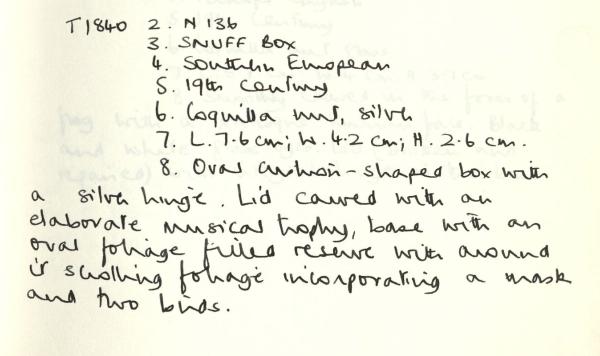 T1840 2. N 136
3. SNUFF BOX
4. Southern European
5. 19th Century
6. Coquilla nut, silver
7. L. 7.6 cm; W. 4.2 cm; H. 2.6 cm.
8. Oval cushion-shaped box with
a silver hinge. Lid carved with an
elaborate musical trophy, base with an
oval foliage filled reserve with around
it scrolling foliage incorporating a mask
and two birds.